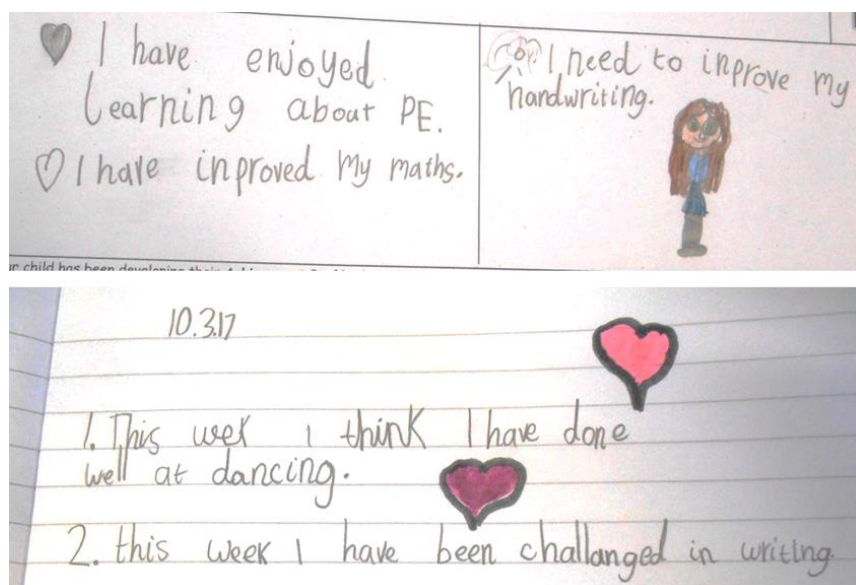 I have enjoyed
Learning about PE.
I have inproved My maths.
I need to inprove my
handwriting.
child has been developing their
10.3.17
1. This wek i think I have done
well at dancing.
2. this week I have been challanged in writing.